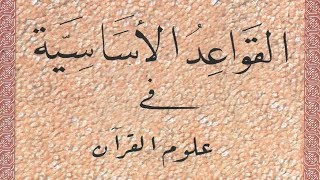 القَوَاعِدُ الأَسَاسِيَّة
في
علوم القرآن